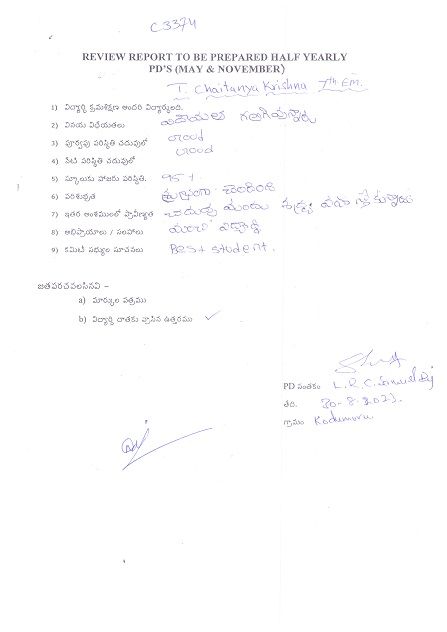 C3374
REVIEW REPORT TO BE PREPARED HALF YEARLY
PD'S (MAY & NOVEMBER)
T. Chaitanya Krishna 7th Em.
1) విద్యార్థి క్రమశిక్షణ అందరి విద్యార్థులది.
2) వినయ విధేయతలు కలిగివున్నాడు
3) పూర్వపు పరిస్థితి చదువులో Good
4) నేటి పరిస్థితి చదువులో Good
5) స్కూలుకు హాజరు పరిస్థితి. 95%
6) పరిశుభ్రత
7) ఇతర అంశములలో ప్రావీణ్యత
8) అభిప్రాయాలు / సలహాలు మంచి విద్యార్థి
9) కమిటీ సభ్యుల సూచనలు Best student.
జతపరచవలసినవి –
a) మార్కుల పత్రము
b) విద్యార్థి దాతకు వ్రాసిన ఉత్తరము ✓
PD సంతకం
తేది. 30-8-2023.
గ్రామం Kodumuru